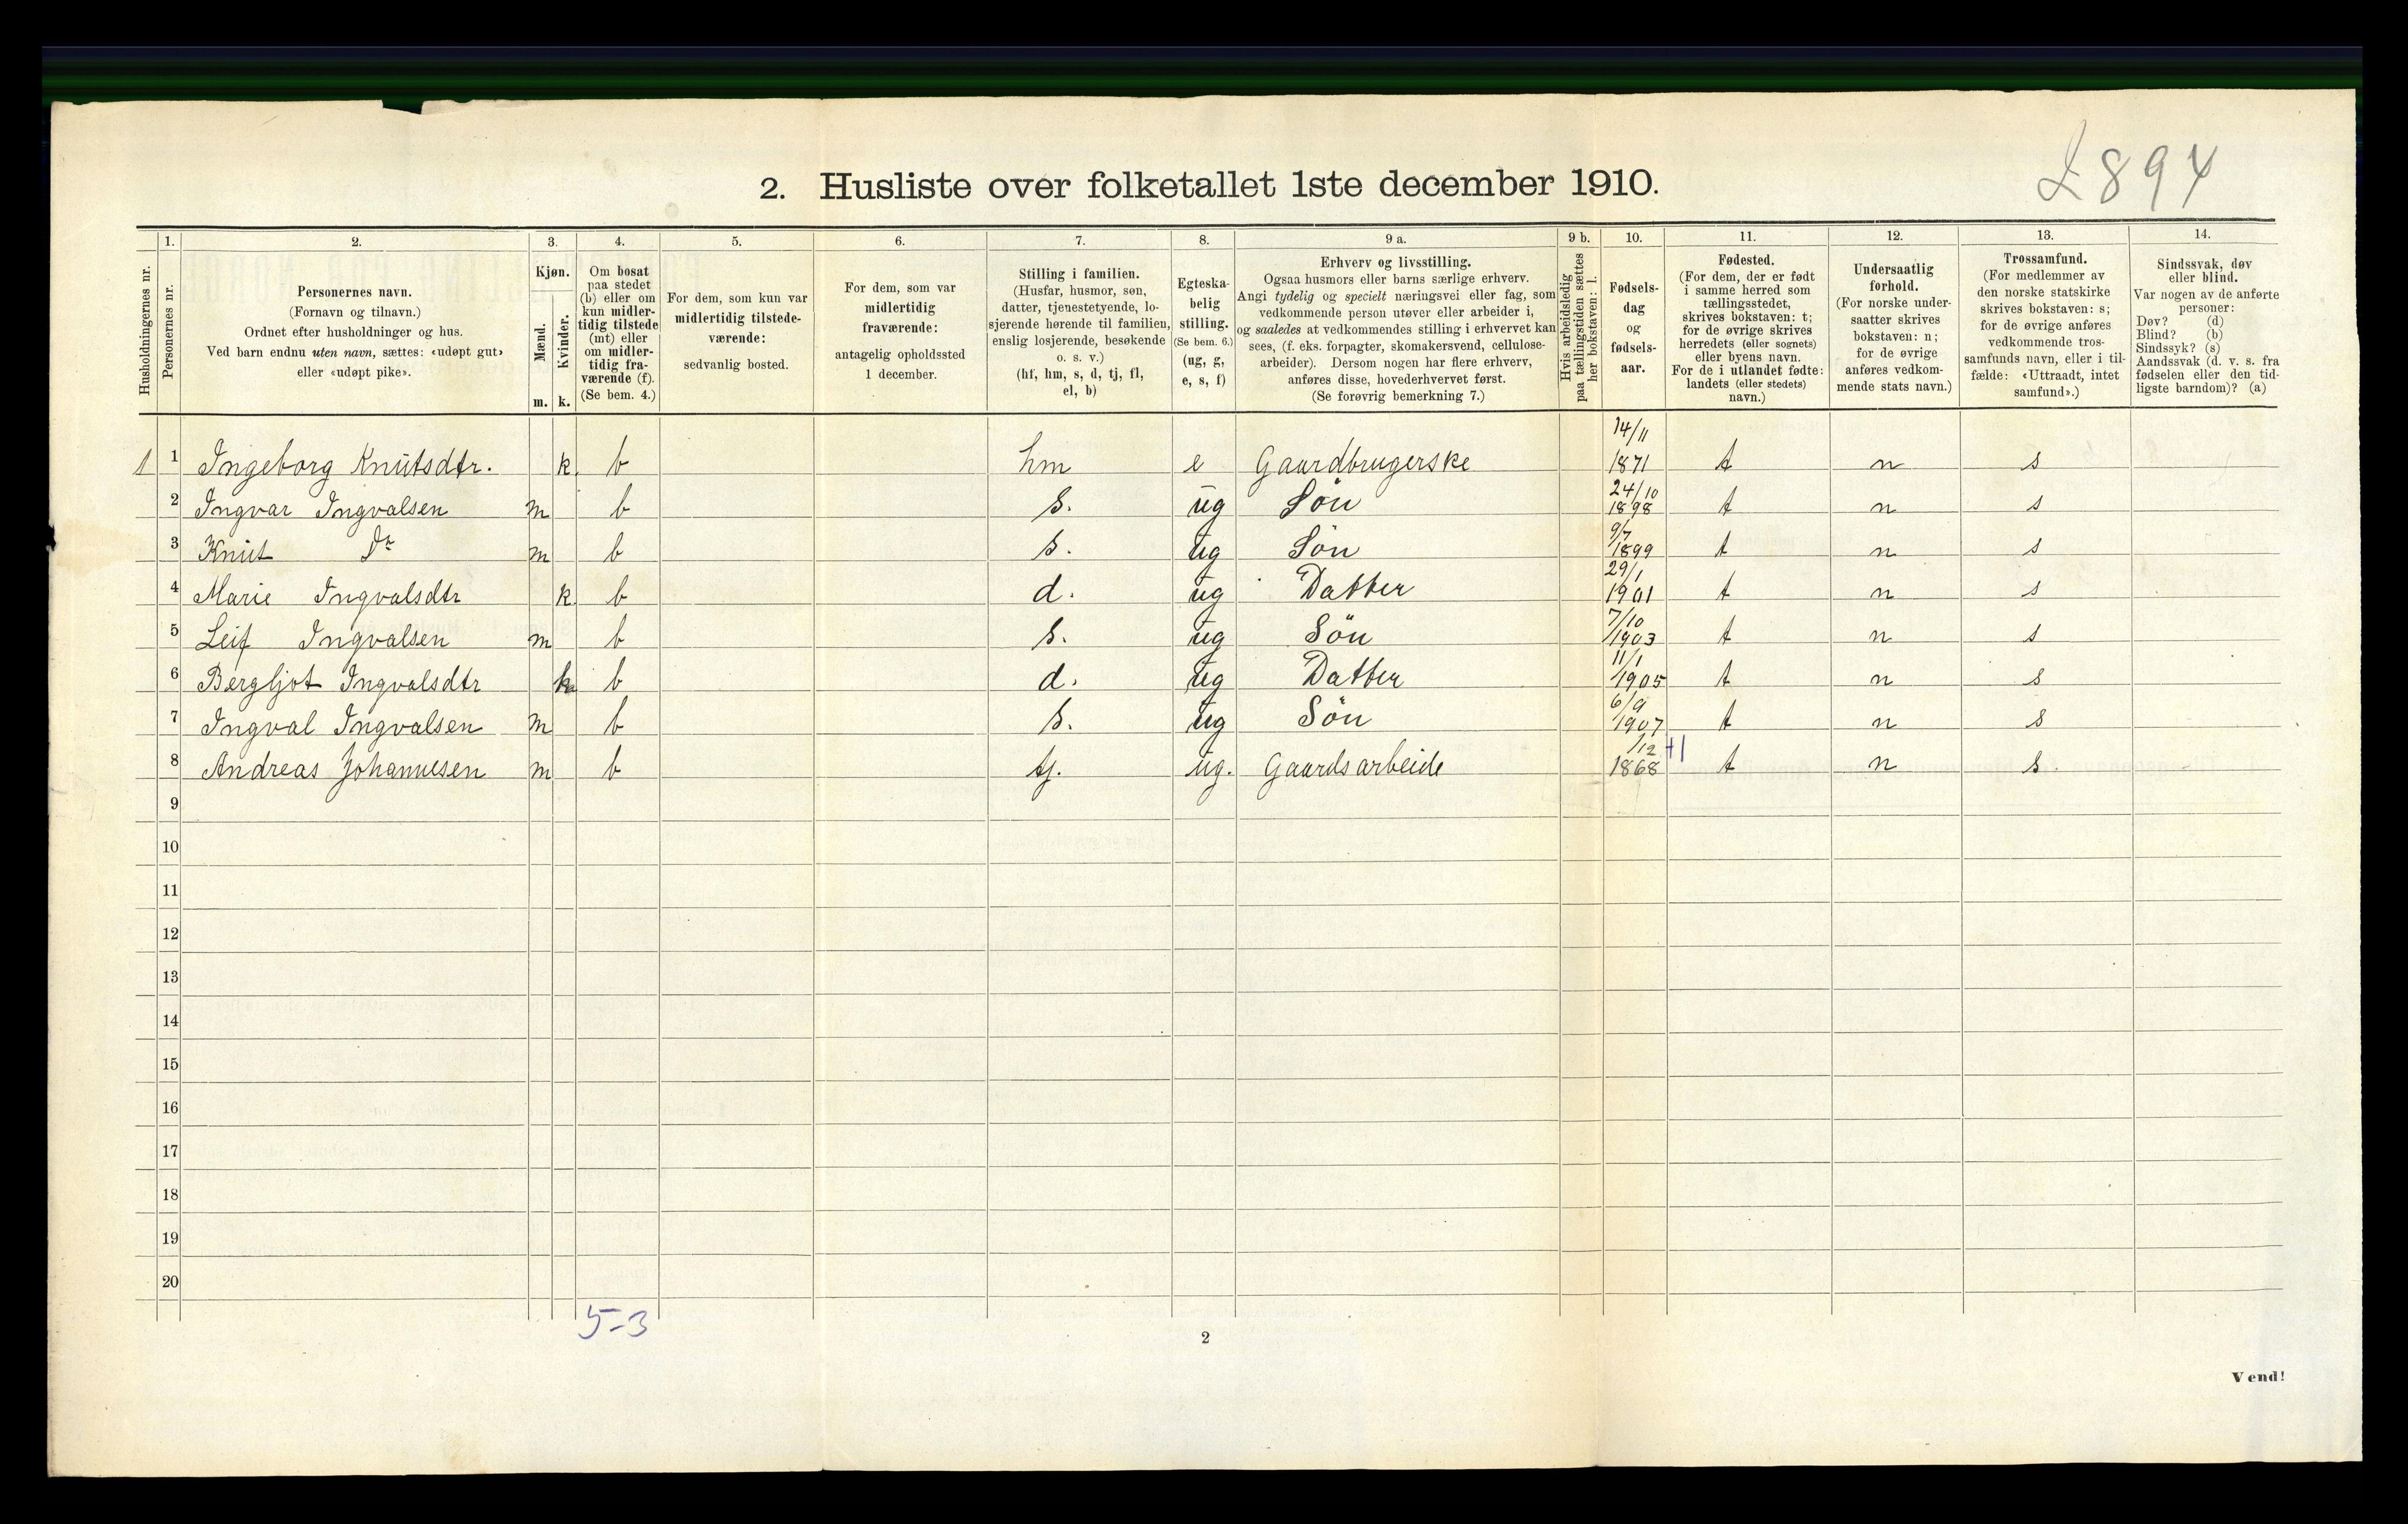 2. Husliste over folketallet 1ste december 1910.
2894
Husholdningernes nr.
1.
Personernes nr.
2.
Personernes navn.
(Fornavn og tilnavn.)
Ordnet efter husholdninger og hus.
Ved barn endnu uten navn, sættes: «udøpt gut»
eller «udøpt pike».
3.
Kjøn.
Mænd.
Kvinder.
m. k.
4.
Om bosat
paa stedet
(b) eller om
kun midler-
tidig tilstede
(mt) eller
om midler-
tidig fra-
værende (f).
(Se bem. 4.)
5.
For dem, som kun var
midlertidig tilstede-
værende:
sedvanlig bosted.
6.
For dem, som var
midlertidig
fraværende:
antagelig opholdssted
1 december.
7.
Stilling i familien.
(Husfar, husmor, søn,
datter, tjenestetyende, lo-
sjerende hørende til familien,
enslig losjerende, besøkende
o. s. v.)
(hf, hm, s, d, tj, fl,
el, b)
8.
Egteska-
belig
stilling.
(Se bem. 6.)
(ug, g,
e, s, f)
9 a.
Erhverv og livsstilling.
Ogsaa husmors eller barns særlige erhverv.
Angi tydelig og specielt næringsvei eller fag, som
vedkommende person utøver eller arbeider i,
og saaledes at vedkommendes stilling i erhvervet kan
sees, (f. eks. forpagter, skomakersvend, cellulose-
arbeider). Dersom nogen har flere erhverv,
anføres disse, hovederhvervet først.
(Se forøvrig bemerkning 7.)
9 b.
Hvis arbeidsledig
paa tællingstiden sættes
her bokstaven: l.
10.
Fødsels-
dag
og
fødsels-
aar.
11.
Fødested.
(For dem, der er født
i samme herred som
tællingsstedet,
skrives bokstaven: t;
for de øvrige skrives
herredets (eller sognets)
eller byens navn.
For de i utlandet fødte:
landets (eller stedets)
navn.)
12.
Undersaatlig
forhold.
(For norske under-
saatter skrives
bokstaven: n;
for de øvrige
anføres vedkom-
mende stats navn.)
13.
Trossamfund.
(For medlemmer av
den norske statskirke
skrives bokstaven: s;
for de øvrige anføres
vedkommende tros-
samfunds navn, eller i til-
fælde: «Uttraadt, intet
samfund».)
14.
Sindssvak, døv
eller blind.
Var nogen av de anførte
personer:
Døv? (d)
Blind? (b)
Sindssyk? (s)
Aandssvak (d. v. s. fra
fødselen eller den tid-
ligste barndom)? (a)
1 1 Ingeborg Knutsdtr. k. b hm e Gaardbrugerske 14/11 1871 t n s
2 Ingvar Ingvalsen m b s. ug Søn 24/10 1898 t n s
3 Knut Do m b s. ug Søn 9/7 1899 t n s
4 Marie Ingvalsdtr k. b d. ug Datter 29/1 1901 t n s
5 Leif Ingvalsen m b s. ug Søn 7/10 1903 t n s
6 Bergljot Ingvalsdtr k b d. ug Datter 11/1 1905 t n s
7 Ingval Ingvalsen m b s. ug Søn 6/9 1907 t n s
8 Andreas Johannesen m b tj. ug. Gaardsarbeide 1/12 1868 +1 t n s.
9
10
11
12
13
14
15
16
17
18
19
20
5-3
2
Vend!